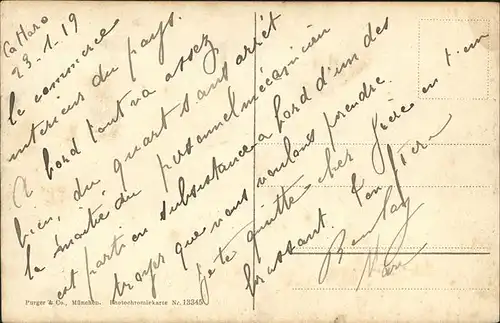 Cattaro
23-1-19
le commerce
intérieur du pays.
A bord tout va assez
bien, du quart sans arrêt
la moitié du personnel mécanicien
est parti en subsistance a bord d'un des
troyer que nous voulons prendre.
je te quitte cher frère en t'em
brassant. Ton frère
Purger & Co., München. Photochromiekarte Nr. 13345